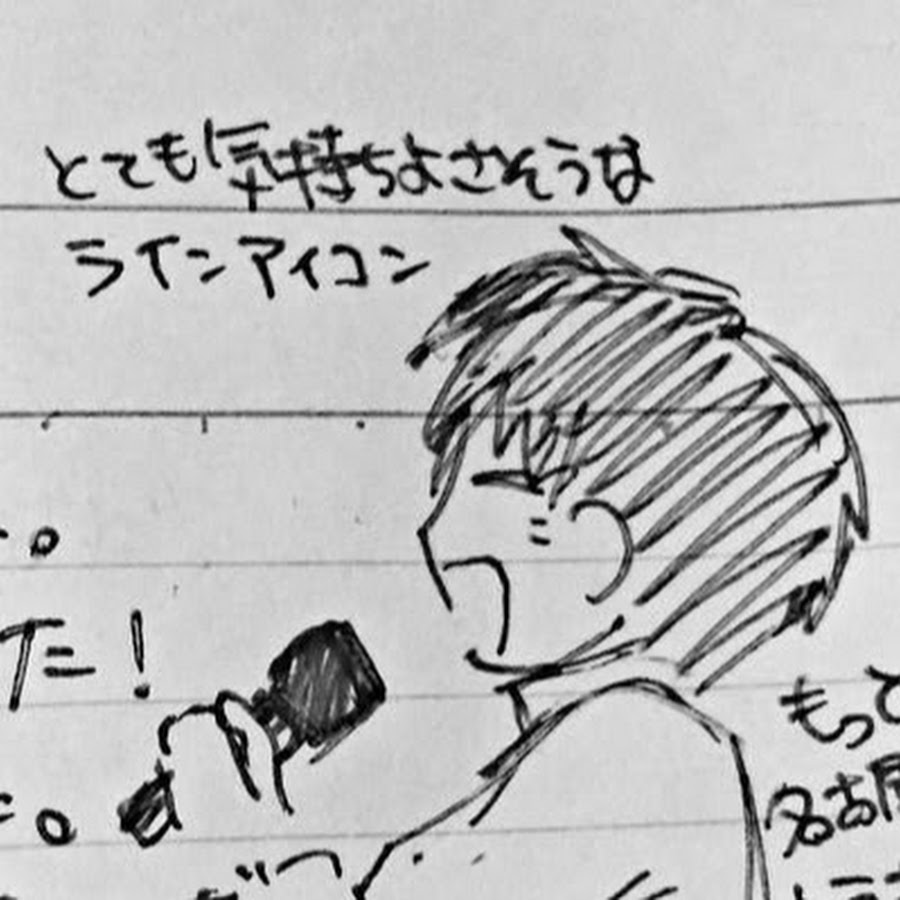 とても気持ちよさそうな
ラインアイコン
た！
もっと
名古屋